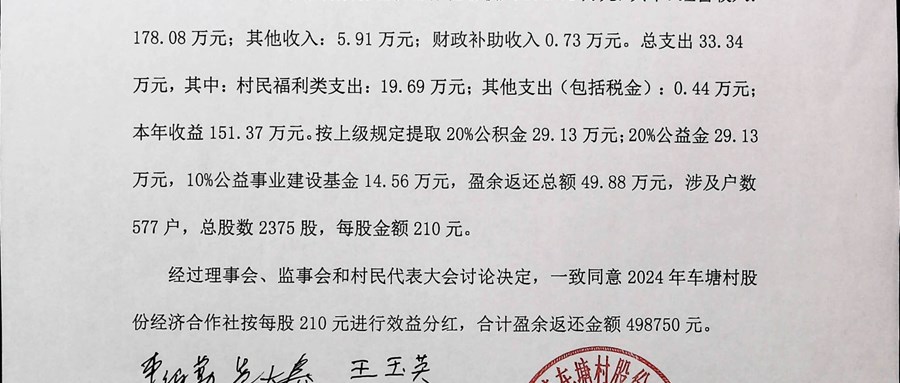 178.08 万元；其他收入：5.91 万元；财政补助收入 0.73 万元。总支出 33.34
万元，其中：村民福利类支出：19.69 万元；其他支出（包括税金）：0.44 万元；
本年收益 151.37 万元。按上级规定提取 20%公积金 29.13 万元；20%公益金 29.13
万元，10%公益事业建设基金 14.56 万元，盈余返还总额 49.88 万元，涉及户数
577 户，总股数 2375 股，每股金额 210 元。
经过理事会、监事会和村民代表大会讨论决定，一致同意 2024 年车塘村股
份经济合作社按每股 210 元进行效益分红，合计盈余返还金额 498750 元。
王玉英
车塘村股份